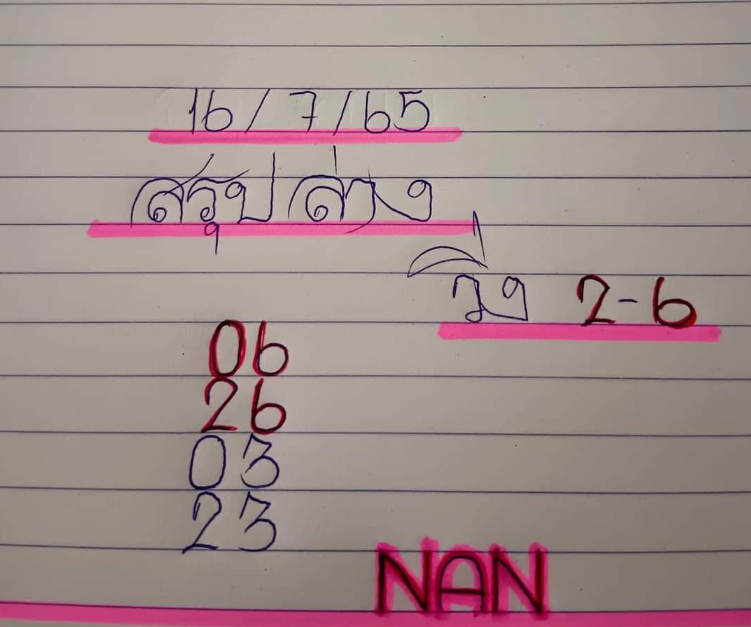 16/7/65
สรุปล่าง
วิ่ง 2-6
06
26
03
23
NAN